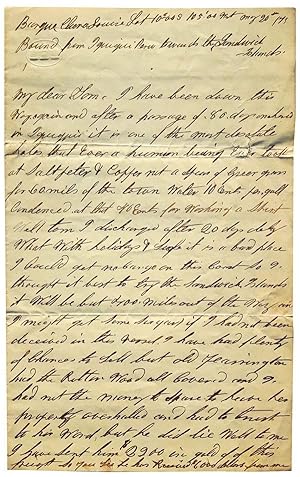 Barque Clara Louise Lat 10°00 S 105°00 W May 25th
Bound from Iquique Peru towards the Sandwich
Islands
My dear Tom. I have been down this
and after a passage of 80 days
in Iquique it is one of the most desolate
holes that Ever a human being Ever took
at Saltpeter & Copper not a Spear of Green grass
for 60 miles of the town Water 10 Cents for gall
Condenced at that 40 Cents for Washing a Shirt
Well tom I discharged after 20 days delay
What With holidays & it is a bad place
I Could get no on this Coast So I
thought it best to try the Sandwich Islands
it Will be but 4000 miles out of the Way
I might get some if I had not been
deceived in the vessel I have had plenty
of Chances to Sell but old
had the Rotten Wood all Covered and I
had not the money to spare to have her
properly overhauled and had to trust
to his Word, but he did lie Well to me
I have sent him $2900 in gold of this
freight So you See he has Received 7000 dollars from me